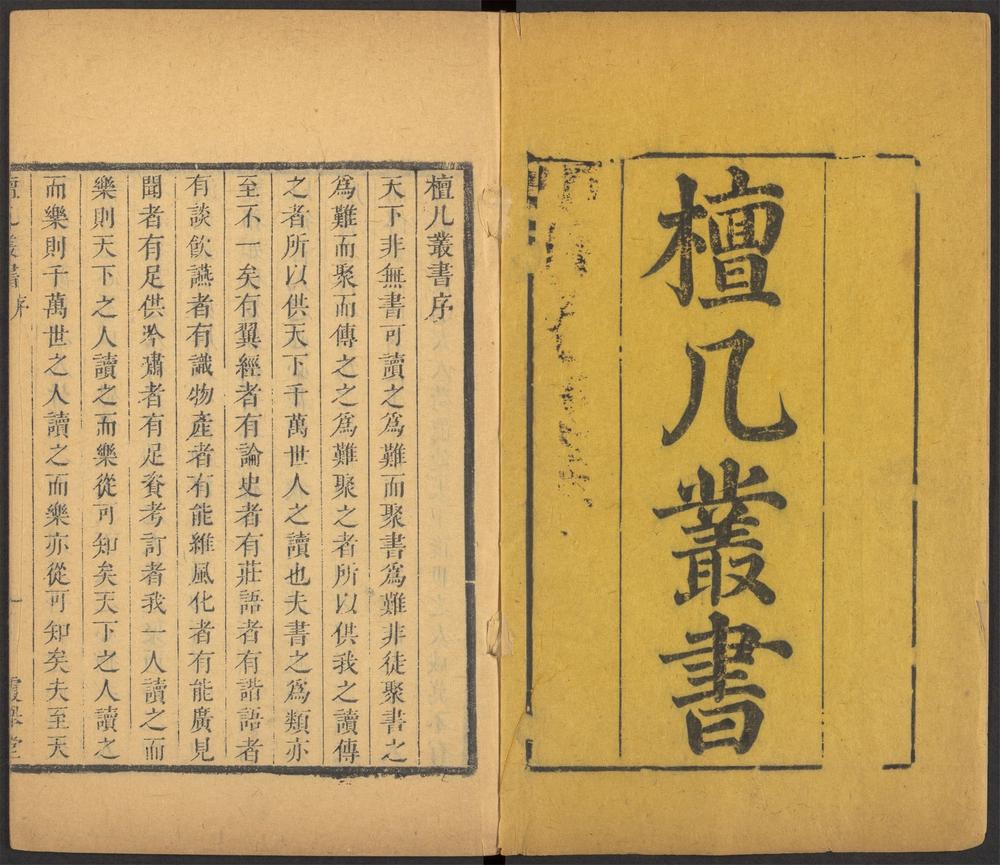 檀几叢書
檀几叢書序
天下非無書可讀之爲難而聚書爲難非徒聚書之
爲難而聚而傳之之爲難聚之者所以供我之讀傳
之者所以供天下千萬世人之讀也夫書之爲類亦
至不一矣有翼經者有論史者有莊語者有諧語者
有談飲讌者有識物產者有能維風化者有能廣見
聞者有足供冷嘯者有足資考訂者我一人讀之而
樂則天下之人讀之而樂從可知矣天下之人讀之
而樂則千萬世之人讀之而樂亦從可知矣夫至天
檀几叢書 序 一 霞舉堂